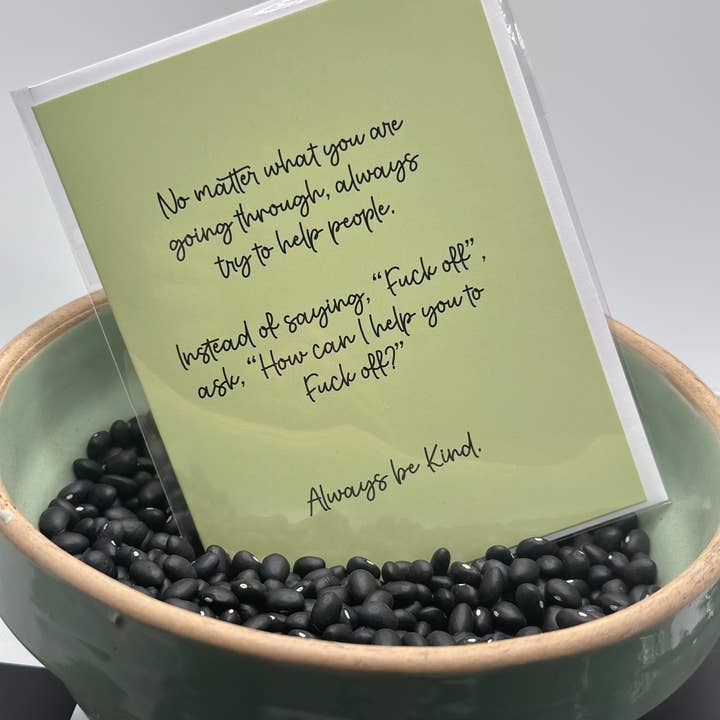 No matter what you are
going through, always
try to help people.
Instead of saying, “Fuck off”,
ask, “How can I help you to
Fuck off?”
Always be Kind.